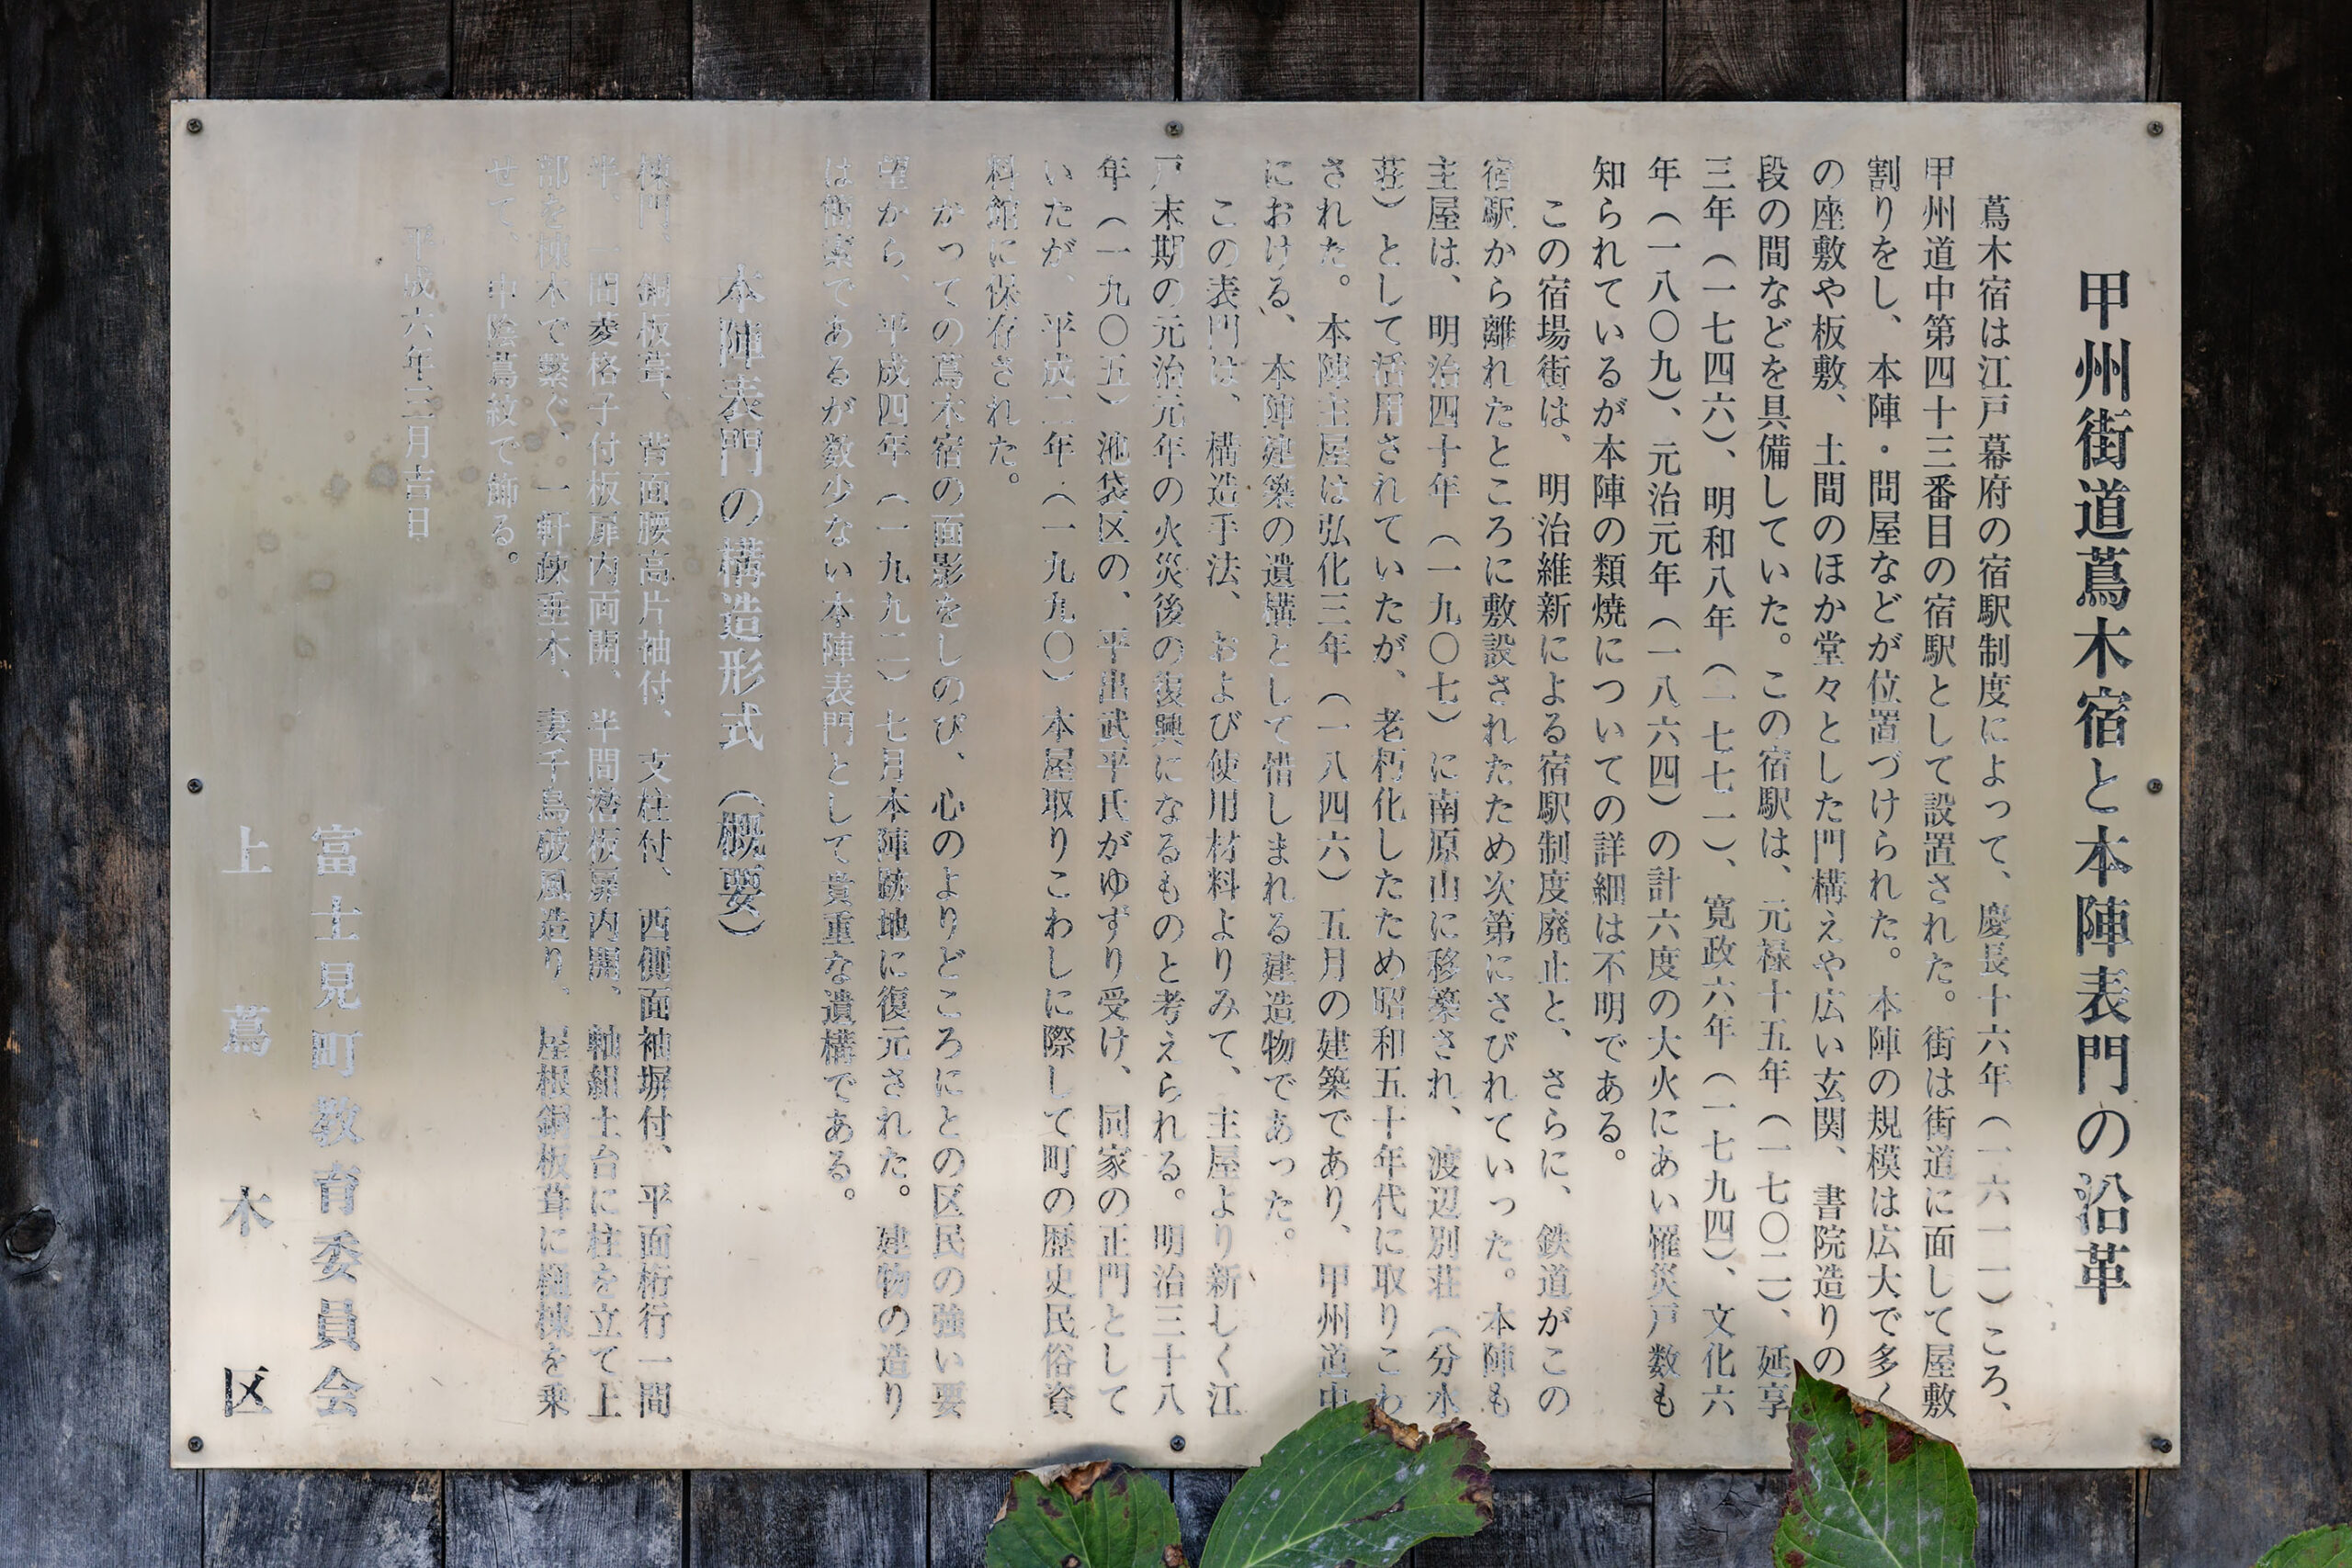 甲州街道蔦木宿と本陣表門の沿革
蔦木宿は江戸幕府の宿駅制度によって、慶長十六年（一六一一）ころ、
甲州道中第四十三番目の宿駅として設置された。街は街道に面して屋敷
割りをし、本陣・問屋などが位置づけられた。本陣の規模は広大で多く
の座敷や板敷、土間のほか堂々とした門構えや広い玄関、書院造りの
段の間などを具備していた。この宿駅は、元禄十五年（一七〇二）、延享
三年（一七四六）、明和八年（一七七一）、寛政六年（一七九四）、文化六
年（一八〇九）、元治元年（一八六四）の計六度の大火にあい罹災戸数も
知られているが本陣の類焼についての詳細は不明である。
この宿場街は、明治維新による宿駅制度廃止と、さらに、鉄道がこの
宿駅から離れたところに敷設されたため次第にさびれていった。本陣も
主屋は、明治四十年（一九〇七）に南原山に移築され、渡辺別荘（分水
荘）として活用されていたが、老朽化したため昭和五十年代に取りこわ
された。本陣主屋は弘化三年（一八四六）五月の建築であり、甲州道中
における、本陣建築の遺構として惜しまれる建造物であった。
この表門は、構造手法、および使用材料よりみて、主屋より新しく江
戸末期の元治元年の火災後の復興になるものと考えられる。明治三十八
年（一九〇五）池袋区の、平出武平氏がゆずり受け、同家の正門として
いたが、平成二年（一九九〇）本屋取りこわしに際して町の歴史民俗資
料館に保存された。
かっての蔦木宿の面影をしのび、心のよりどころにとの区民の強い要
望から、平成四年（一九九二）七月本陣跡地に復元された。建物の造り
は簡素であるが数少ない本陣表門として貴重な遺構である。
本陣表門の構造形式（概要）
棟門、銅板葺、背面腰高片袖付、支柱付、西側面袖塀付、平面桁行一間
半、一間菱格子付板扉内両開、半間潜板扉内開、軸組土台に柱を立て上
部を棟木で繋ぐ、一軒疎垂木、妻千鳥破風造り、屋根銅板葺に樋棟を乗
せて、中陰蔦紋で飾る。
平成六年三月吉日
富士見町教育委員会
上蔦木区